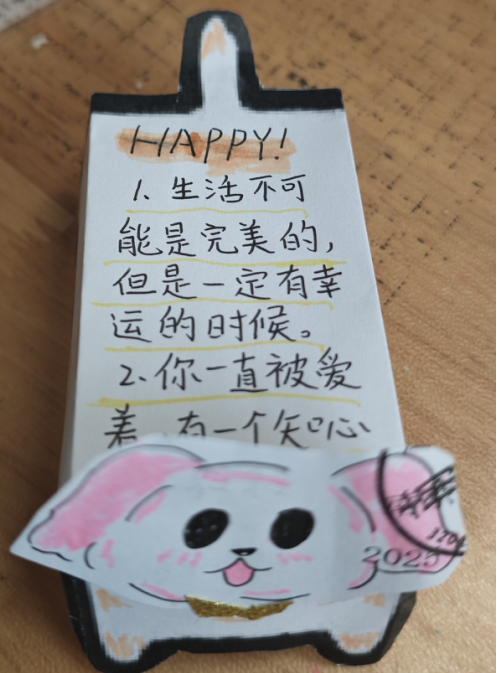 HAPPY!
1、生活不可
能是完美的，
但是一定有幸
运的时候。
2、你一直被爱
着 有一个知心
2025